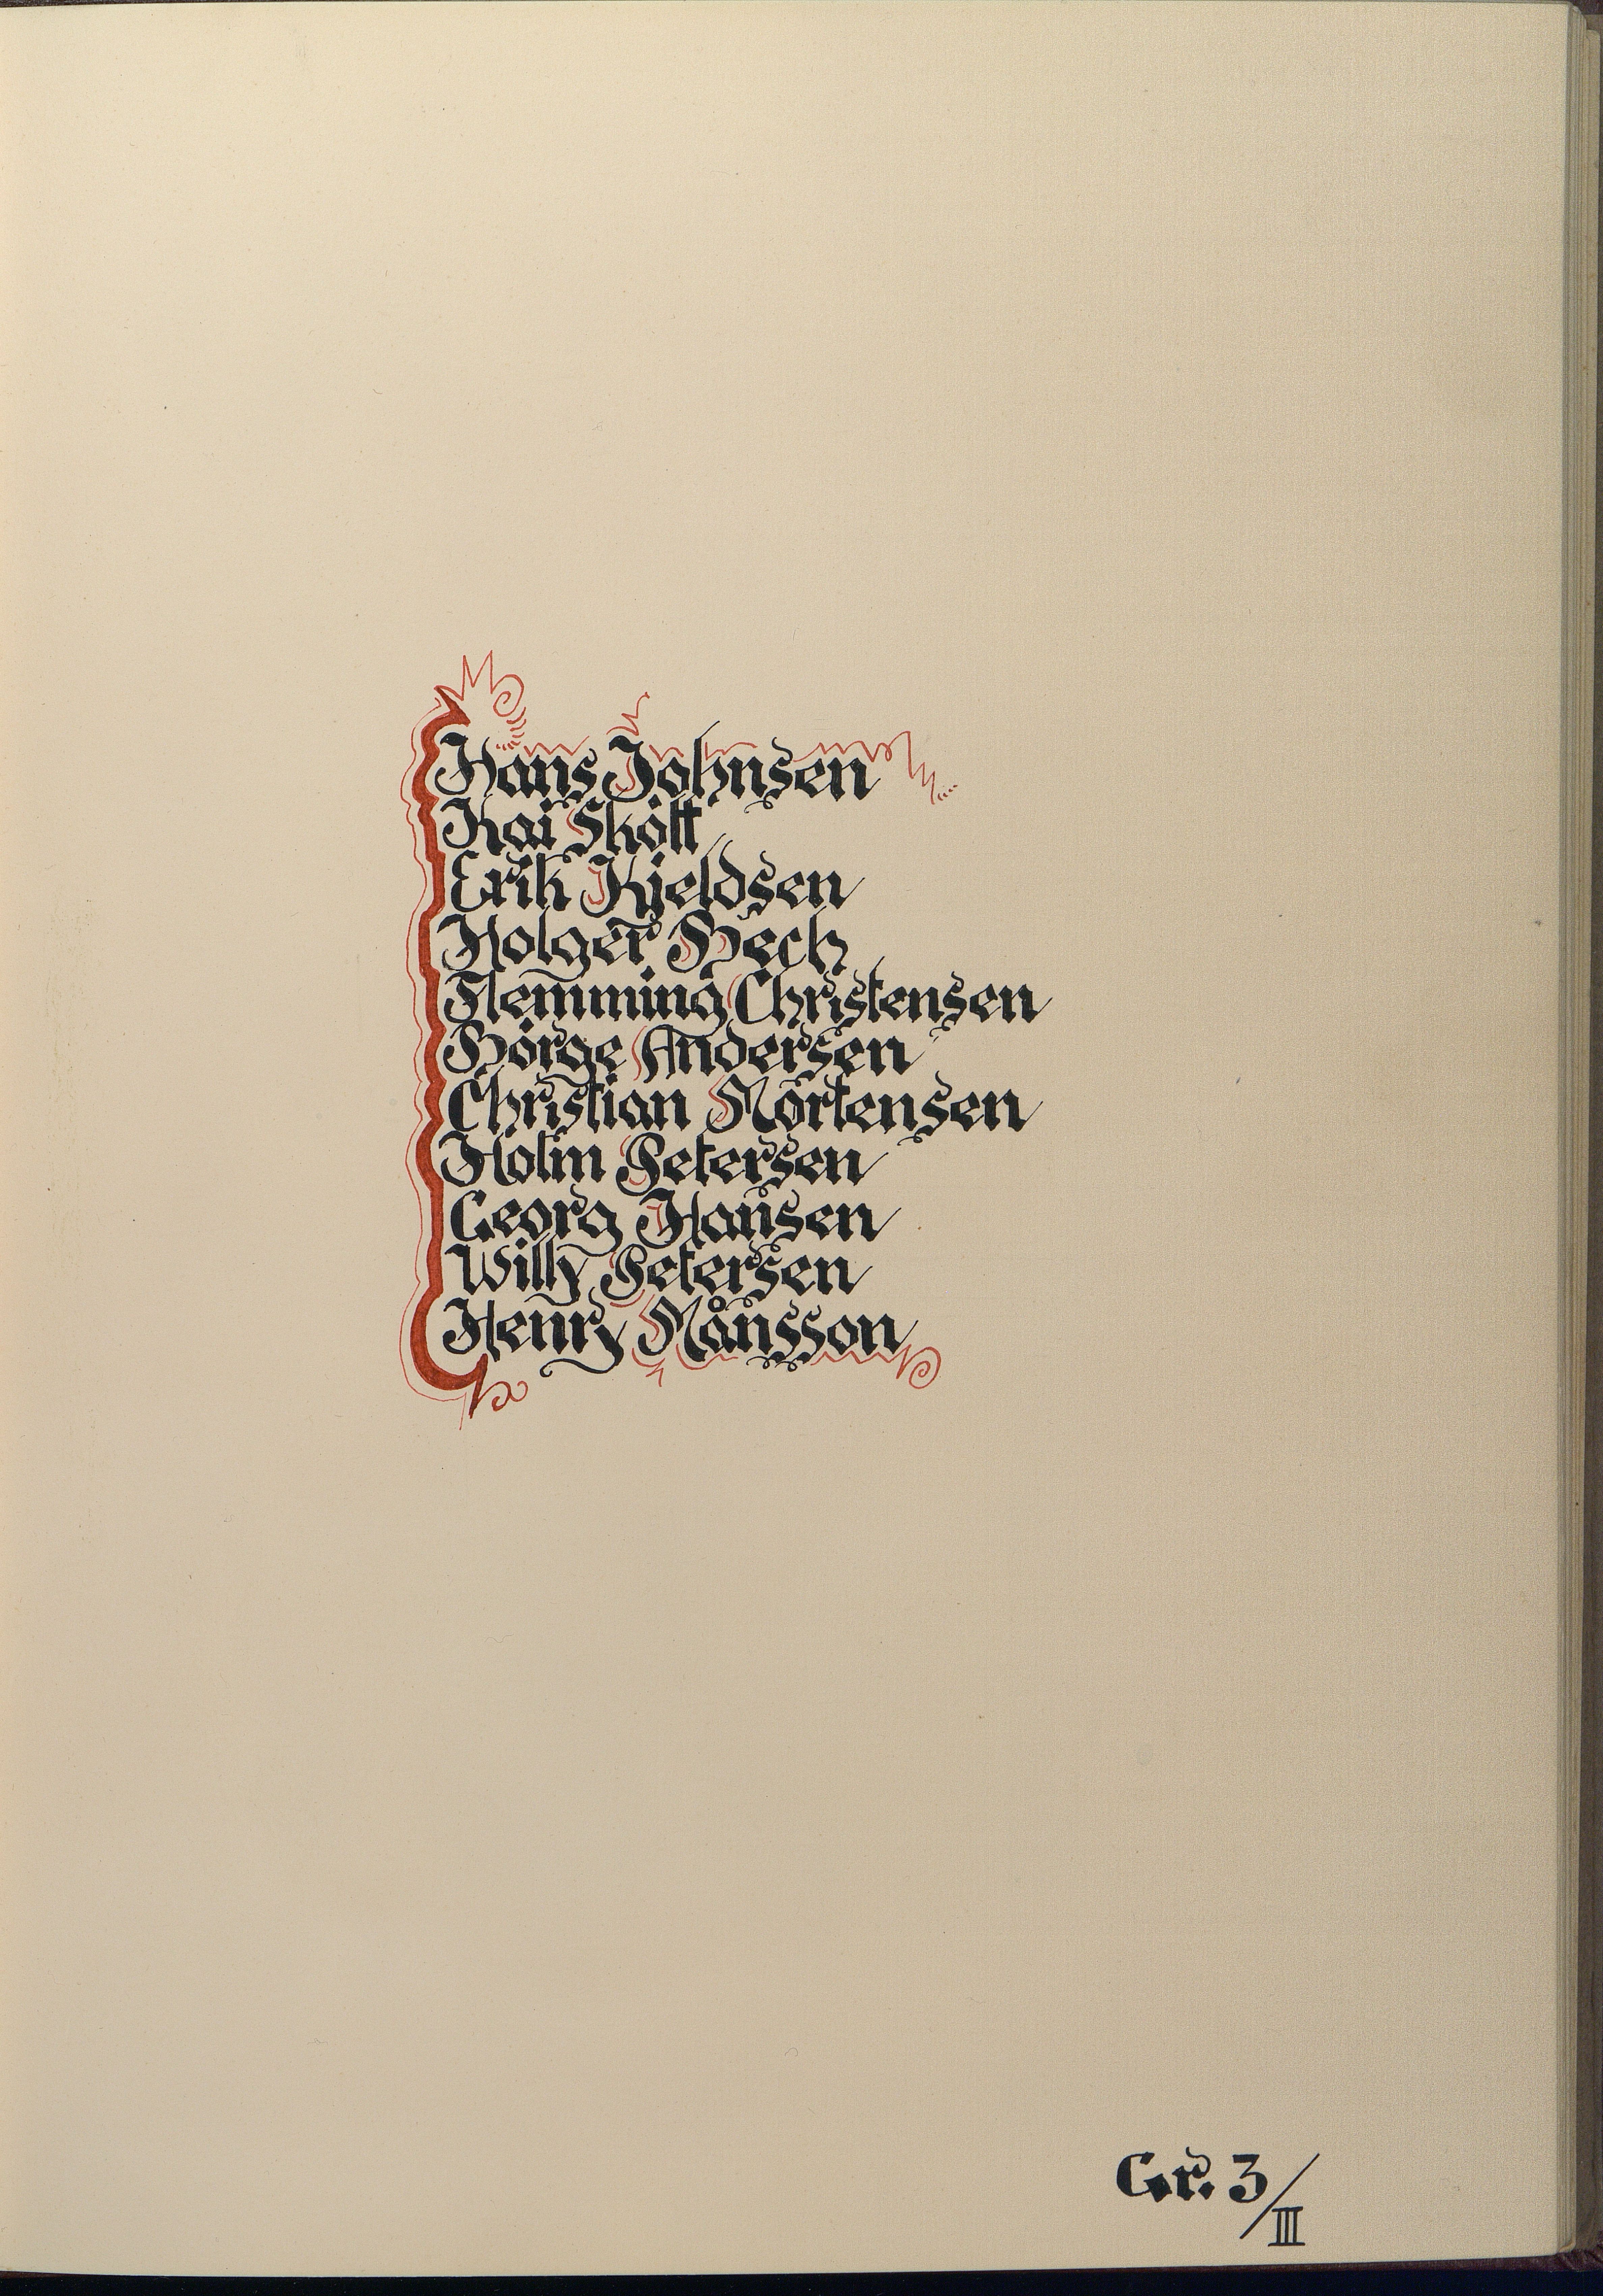 Hans Johnsen
Kai Skött
Erik Kjeldsen
Holger Bech
Flemming Christensen
Börge Andersen
Christian Mörtensen
Holm Petersen
Georg Hansen
Willy Petersen
Henry Månsson
Gr. 3/III